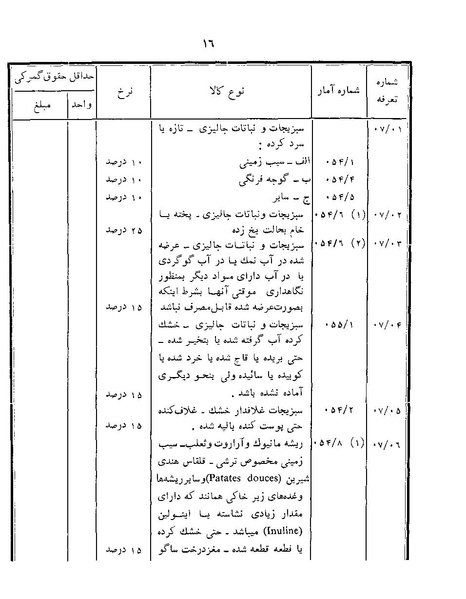 ۱۶
شماره تعرفه	شماره آمار	نوع کالا	نرخ	حداقل حقوق گمرکی
واحد	مبلغ
۰۷/۰۱	سبزیجات و نباتات جالیزی ـ تازه یا
سرد کرده :
۰۵۴/۱	الف ـ سیب زمینی	۱۰ درصد
۰۵۴/۴	ب ـ گوجه فرنگی	۱۰ درصد
۰۵۴/۵	ج ـ سایر	۱۰ درصد
۰۷/۰۲	(۱) ۰۵۴/۶	سبزیجات ونباتات جالیزی ـ پخته یا
خام بحالت یخ زده	۲۵ درصد
۰۷/۰۳	(۲) ۰۵۴/۶	سبزیجات و نباتات جالیزی ـ عرضه
شده در آب نمك یا در آب گوگردی
یا در آب دارای مواد دیگر بمنظور
نگاهداری موقتی آنها بشرط اینکه
بصورت عرضه شده قابل مصرف نباشد	۱۵ درصد
۰۷/۰۴	۰۵۵/۱	سبزیجات و نباتات جالیزی ـ خشك
کرده آب گرفته شده یا بتخیر شده ـ
حتی بریده یا قاچ شده یا خرد شده یا
کوبیده یا سائیده ولی بنحو دیگری
آماده نشده باشد .	۱۵ درصد
۰۷/۰۵	۰۵۴/۲	سبزیجات غلافدار خشك ـ غلاف کنده
حتی پوست کنده یالپه شده .	۱۵ درصد
۰۷/۰۶	(۱) ۰۵۴/۸	ریشه مانیوك و آراروت وثعلب ـ سیب
زمینی مخصوص ترشی ـ قلقاس هندی
شیرین (Patates douces) وسایر ریشه‌ها
وغده‌های زیر خاکی همانند که دارای
مقدار زیادی نشاسته یا اینولین
(Inuline) میباشد ـ حتی خشك کرده
یا قطعه قطعه شده ـ مغز درخت ساگو	۱۵ درصد